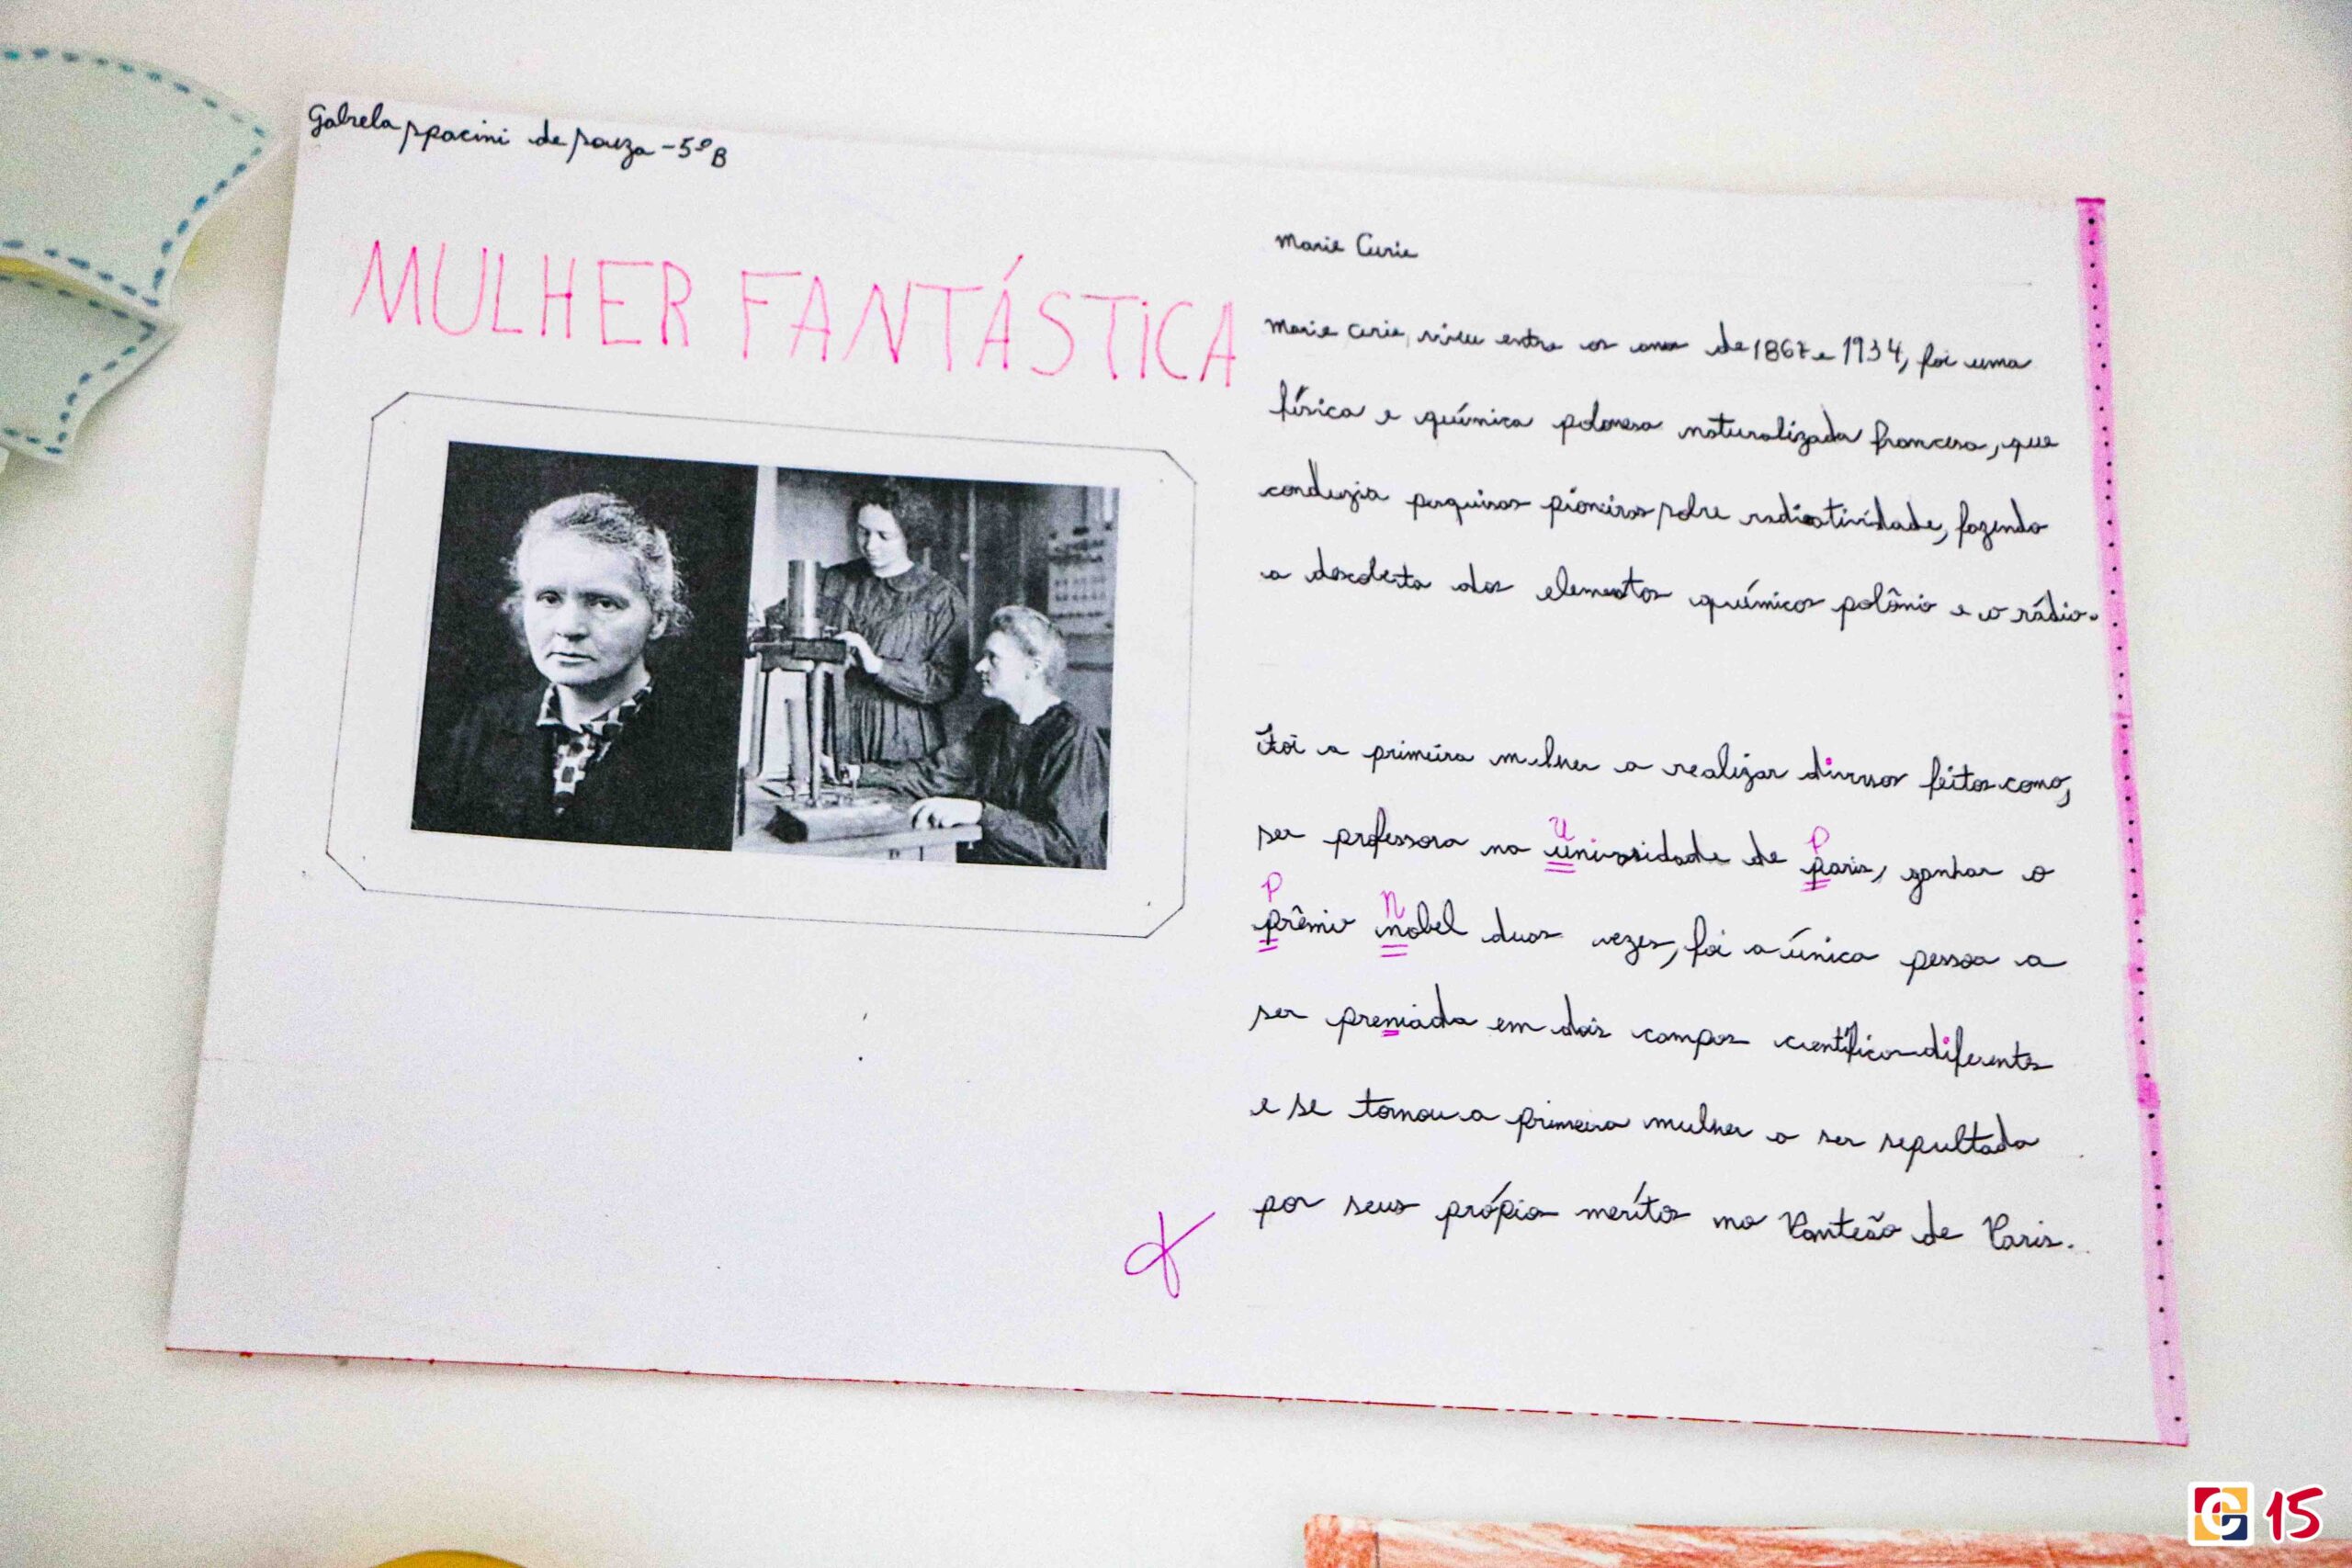 Gabrela spacini de souza - 5º B
MULHER FANTÁSTICA
Marie Curie
Marie Curie, viveu entre os anos de 1867 e 1934, foi uma
física e química polonesa naturalizada francesa, que
conduzia pesquisas pioneiras sobre radioatividade, fazendo
a descoberta dos elementos químicos polônio e o rádio.
Foi a primeira mulher a realizar diversos feitos como,
U P
ser professora na universidade de paris, ganhar o
P N
prêmio nobel duas vezes, foi a única pessoa a
ser premiada em dois campos científicos diferentes
e se tornou a primeira mulher a ser sepultada
por seus própios meritos no Panteão de Paris.
C 15